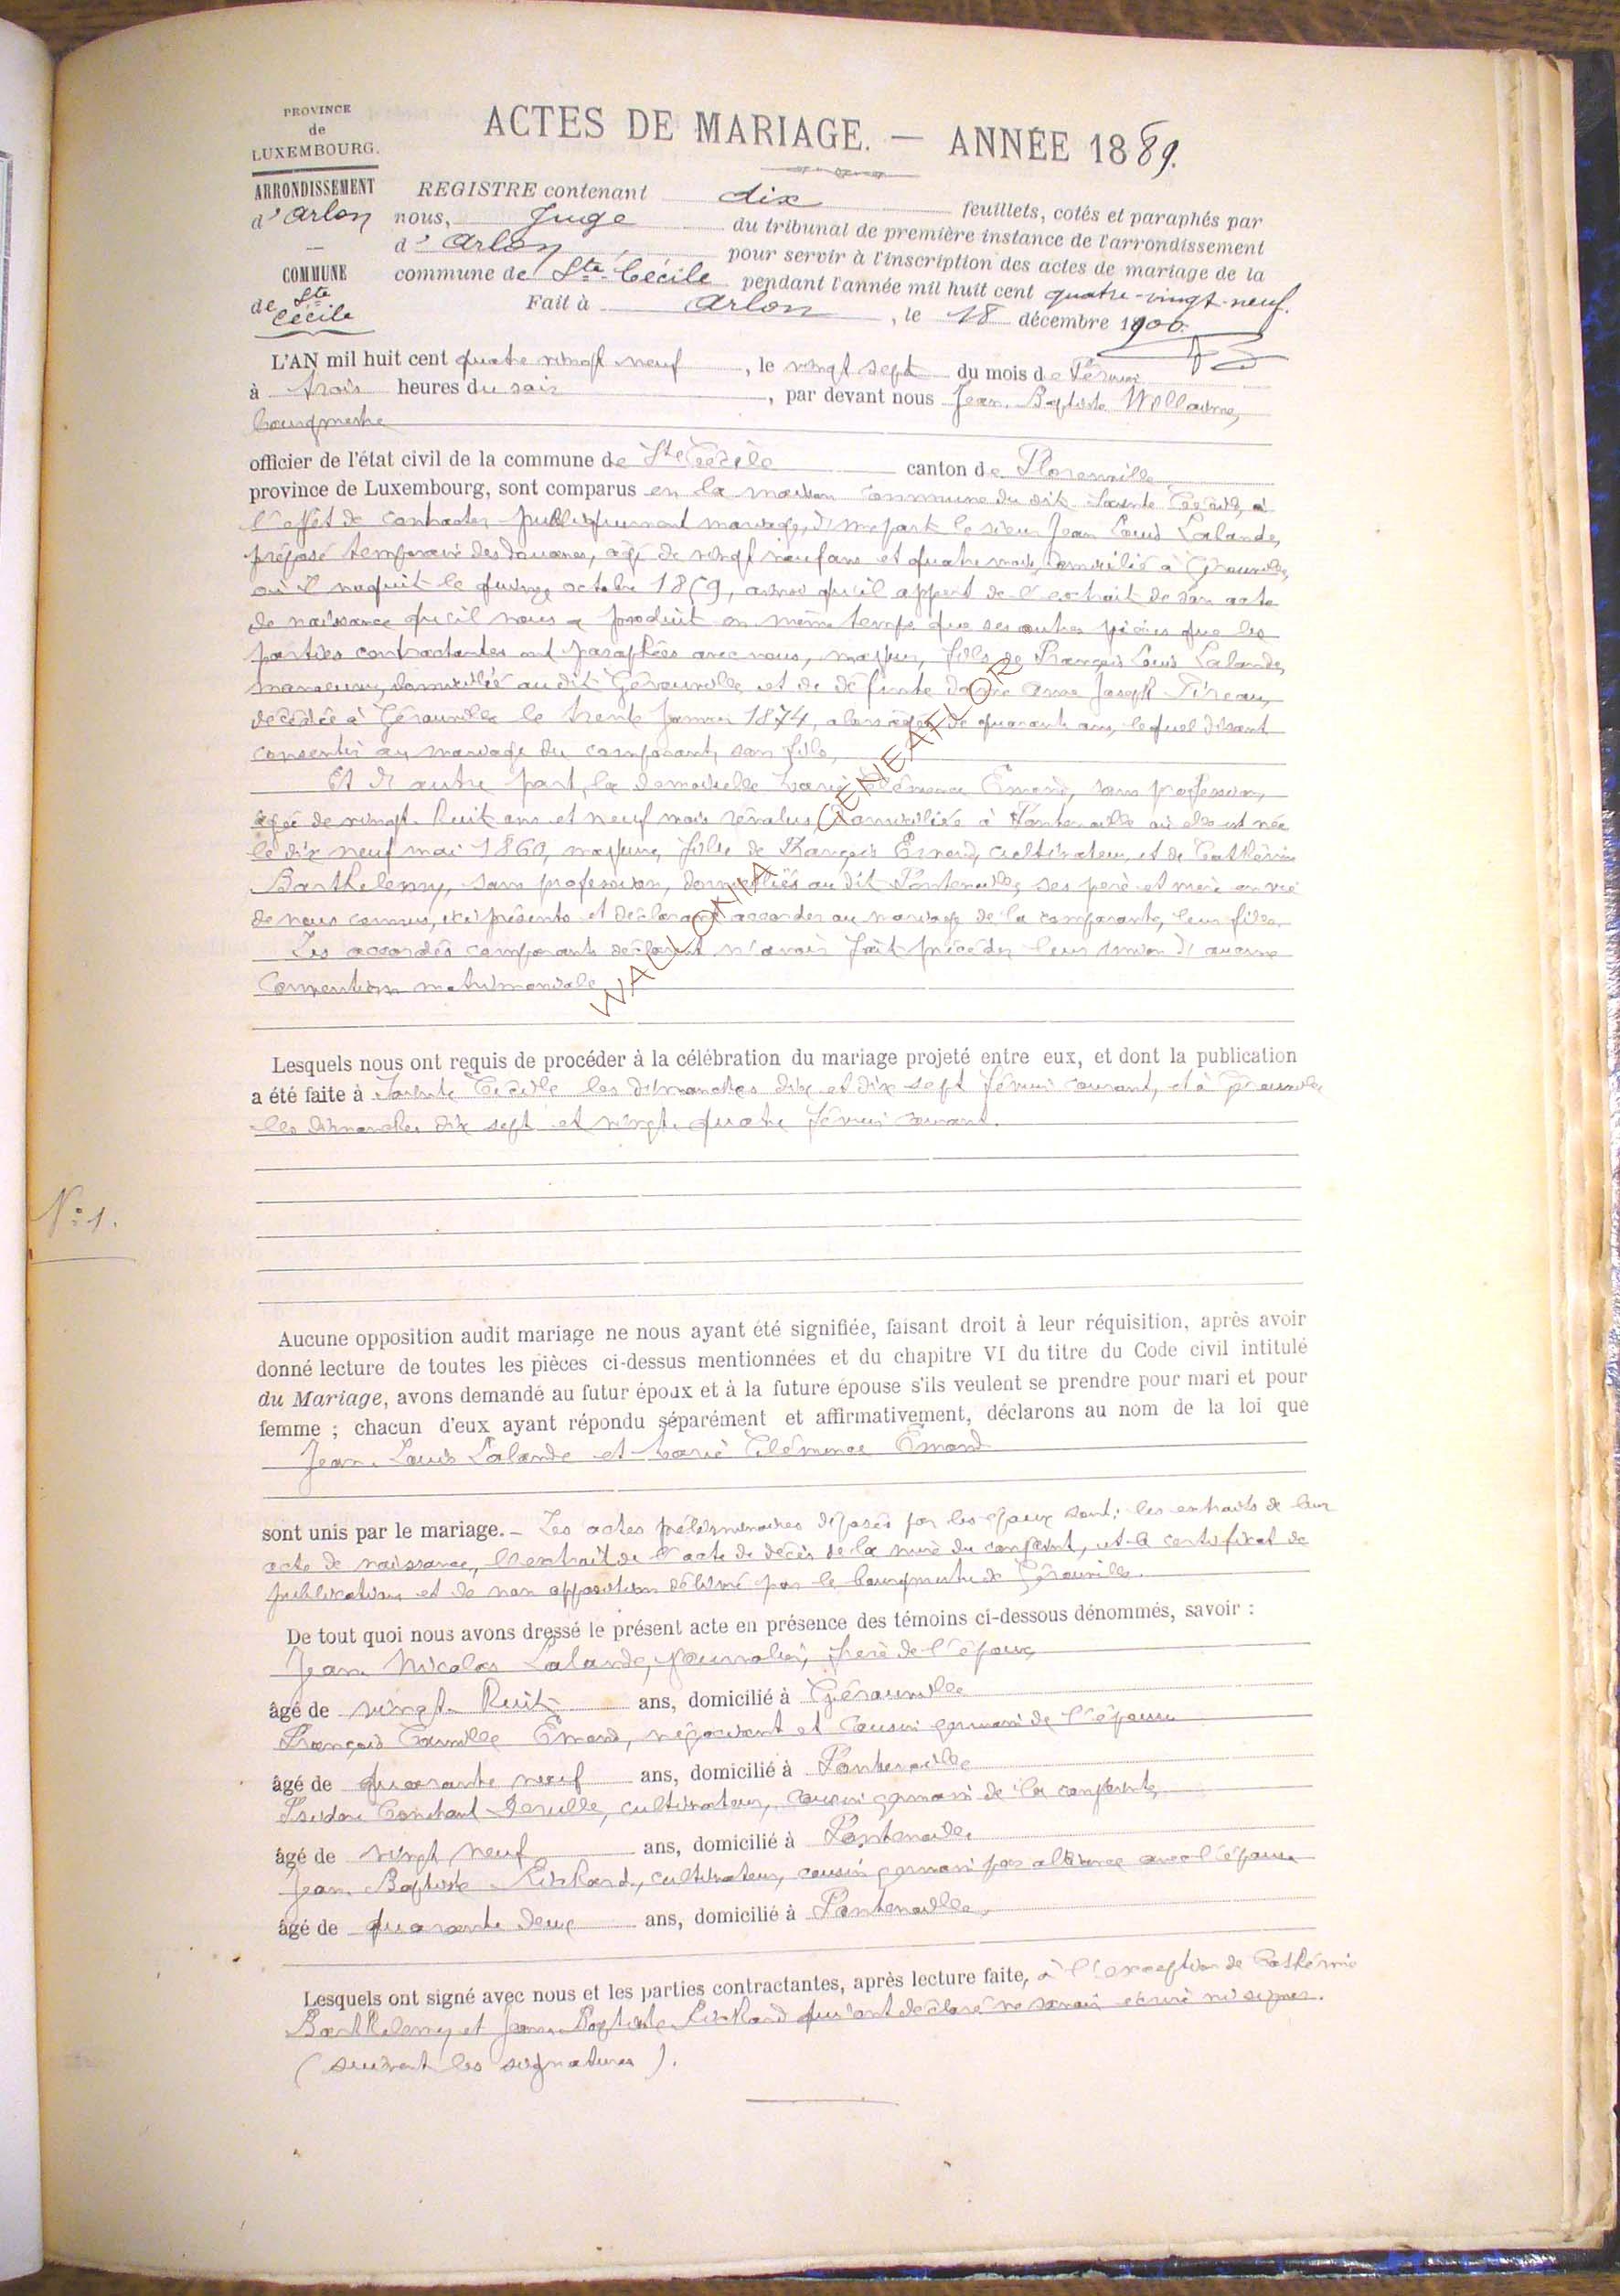 PROVINCE
de
LUXEMBOURG.
ARRONDISSEMENT
d'Arlon
—
COMMUNE
de Ste
Cécile
ACTES DE MARIAGE. — ANNÉE 1889.
REGISTRE contenant dix feuillets, cotés et paraphés par
nous, Juge du tribunal de première instance de l'arrondissement
d'Arlon pour servir à l'inscription des actes de mariage de la
commune de Ste Cécile pendant l'année mil huit cent quatre-vingt-neuf.
Fait à Arlon, le 18 décembre 1900.
L'AN mil huit cent quatre vingt neuf, le vingt sept du mois de Février
à trois heures du soir, par devant nous Jean Baptiste
bourgmestre
officier de l'état civil de la commune de Ste Cécile canton de Florenville
province de Luxembourg, sont comparus en la maison commune du dit Sainte Cécile, à
l'effet de contracter publiquement mariage, d'une part le sieur Jean Louis Lalande,
préposé temporaire des douanes, âgé de vingt neuf ans et quatre mois, domicilié à Gérouville,
où il naquit le quinze octobre 1859, ainsi qu'il appert de l'extrait de son acte
de naissance qu'il nous a produit en même temps que ses autres pièces que les
parties contractantes ont paraphées avec nous, majeur, fils de François Louis Lalande,
manœuvre, domicilié au dit Gérouville et de défunte dame Anne Joseph
décédée à Gérouville le trente janvier 1874, alors âgée de quarante ans, lequel disant
consentir au mariage du comparant, son fils,
Et d'autre part, la demoiselle Marie Clémence Emond, sans profession,
âgée de vingt-huit ans et neuf mois révolus, domiciliée à Fontenoille où elle est née
le dix neuf mai 1860, majeure, fille de François Emond, cultivateur, et de Cathérine
Barthelemy, sans profession, domiciliés au dit Fontenoille, ses père et mère en vie
de nous connus, ici présents et déclarant accorder au mariage de la comparante, leur fille.
Les accordés comparants déclarent n'avoir fait précéder leur union d'aucune
Convention matrimoniale.
WALLONIA GENEAFLOR
Lesquels nous ont requis de procéder à la célébration du mariage projeté entre eux, et dont la publication
a été faite à Sainte Cécile les dimanches dix et dix sept février courant, et à Gérouville
les dimanches dix sept et vingt quatre février courant.
N° 1.
Aucune opposition audit mariage ne nous ayant été signifiée, faisant droit à leur réquisition, après avoir
donné lecture de toutes les pièces ci-dessus mentionnées et du chapitre VI du titre du Code civil intitulé
du Mariage, avons demandé au futur époux et à la future épouse s'ils veulent se prendre pour mari et pour
femme ; chacun d'eux ayant répondu séparément et affirmativement, déclarons au nom de la loi que
Jean Louis Lalande et Marie Clémence Emond
sont unis par le mariage. – Les actes préliminaires déposés par les époux sont : les extraits de leur
acte de naissance, l'extrait de l'acte de décès de la mère du conjoint, et le certificat de
publications et de non opposition délivré par le bourgmestre de Gérouville.
De tout quoi nous avons dressé le présent acte en présence des témoins ci-dessous dénommés, savoir :
Jean Nicolas Lalande, journalier, frère de l'époux
âgé de vingt-huit ans, domicilié à Gérouville
François Camille Emond, négociant et cousin germain de l'épouse
âgé de quarante neuf ans, domicilié à Fontenoille
Isidore Constant cultivateur, cousin germain de la conjointe,
âgé de vingt neuf ans, domicilié à Fontenoille.
Jean Baptiste cultivateur, cousin germain par alliance avec l'épouse
âgé de quarante deux ans, domicilié à Fontenoille.
Lesquels ont signé avec nous et les parties contractantes, après lecture faite, à l'exception de Cathérine
Barthelemy et Jean Baptiste qui ont déclaré ne savoir écrire ni signer.
(suivent les signatures).